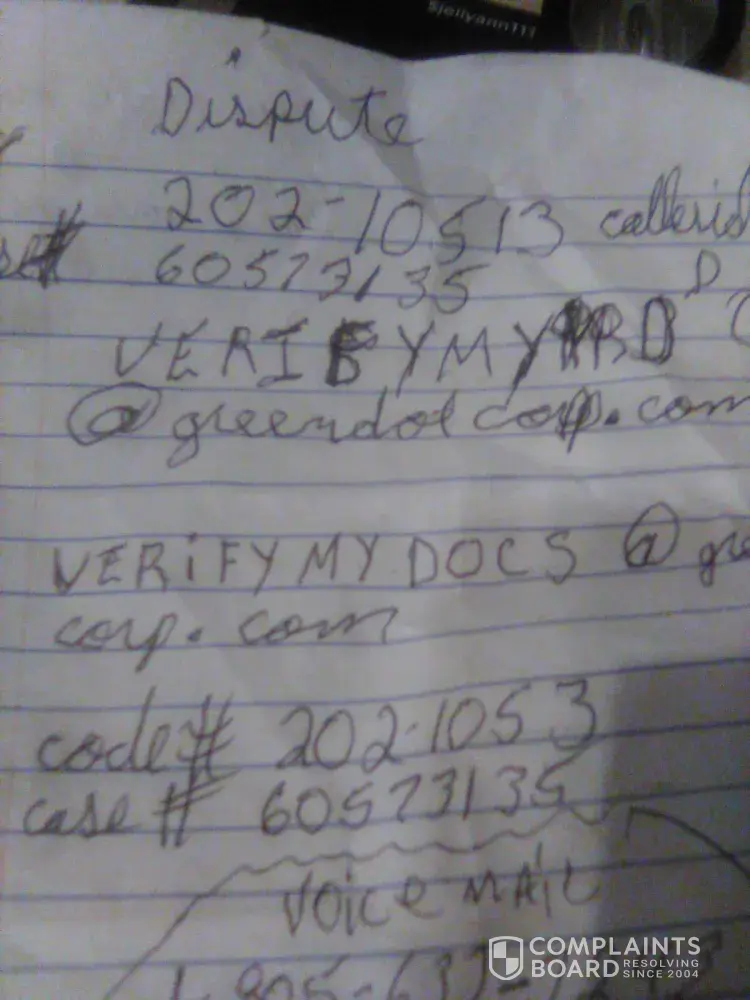 sjellyann111
Dispute
202-10513 callerid
case# 60573135 D
VERIFYMY
@greendotcorp.com
VERiFYMYDOCS @ gre
corp.com
code# 202-1053
case# 60573135
VOiCe MAiL
1-805-637-
COMPLAINTS
BOARD RESOLVING
SINCE 2004